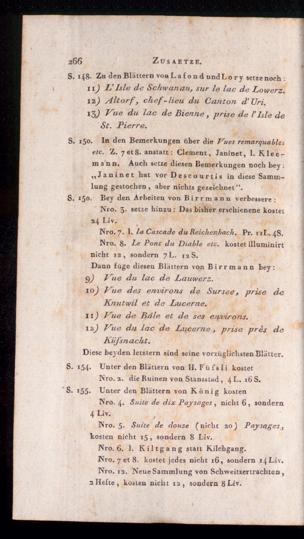 266 ZUSAETZE.
S. 148. Zu den Blättern von Lafond und Lory setze noch:
11) L'Isle de Schwanau, sur le lac de Lowerz.
12) Altorf, chef-lieu du Canton d'Uri.
13) Vue du lac de Bienne, prise de l'Isle de
St. Pierre.
S. 150. In den Bemerkungen über die Vues remarquables
etc. Z. 7 et 8. anstatt: Clement, Janinet, l. Klee-
mann. Auch setze diesen Bemerkungen noch bey:
„Janinet hat vor Descourtis in diese Samm-
lung gestochen, aber nichts gezeichnet".
S. 150. Bey den Arbeiten von Birrmann verbessere:
Nro. 3. setze hinzu: Das bisher erschienene kostet
24 Liv.
Nro. 7. l. la Cascade du Reichenbach. Pr. 12 L. 4 S.
Nro. 8. Le Pont du Diable etc. kostet illuminirt
nicht 12, sondern 7 L. 12 S.
Dann füge diesen Blättern von Birrmann bey:
9) Vue du lac de Lauwerz.
10) Vue des environs de Sursee, prise de
Knutwil et de Lucerne.
11) Vue de Bâle et de ses environs.
12) Vue du lac de Lucerne, prise près de
Küssnacht.
Diese beyden letztern sind seine vorzüglichsten Blätter.
S. 154. Unter den Blättern von H. Füfsli kostet
Nro. 2. die Ruinen von Stansstad, 4 L. 16 S.
S. 155. Unter den Blättern von König kosten
Nro. 4. Suite de dix Paysages, nicht 6, sondern
4 Liv.
Nro. 5. Suite de douze (nicht 20) Paysages,
kosten nicht 15, sondern 8 Liv.
Nro. 6. l. Kiltgang statt Kilehgang.
Nro. 7 et 8. kostet jedes nicht 16, sondern 14 Liv.
Nro. 12. Neue Sammlung von Schweitzertrachten,
2 Hefte, kosten nicht 12, sondern 8 Liv.